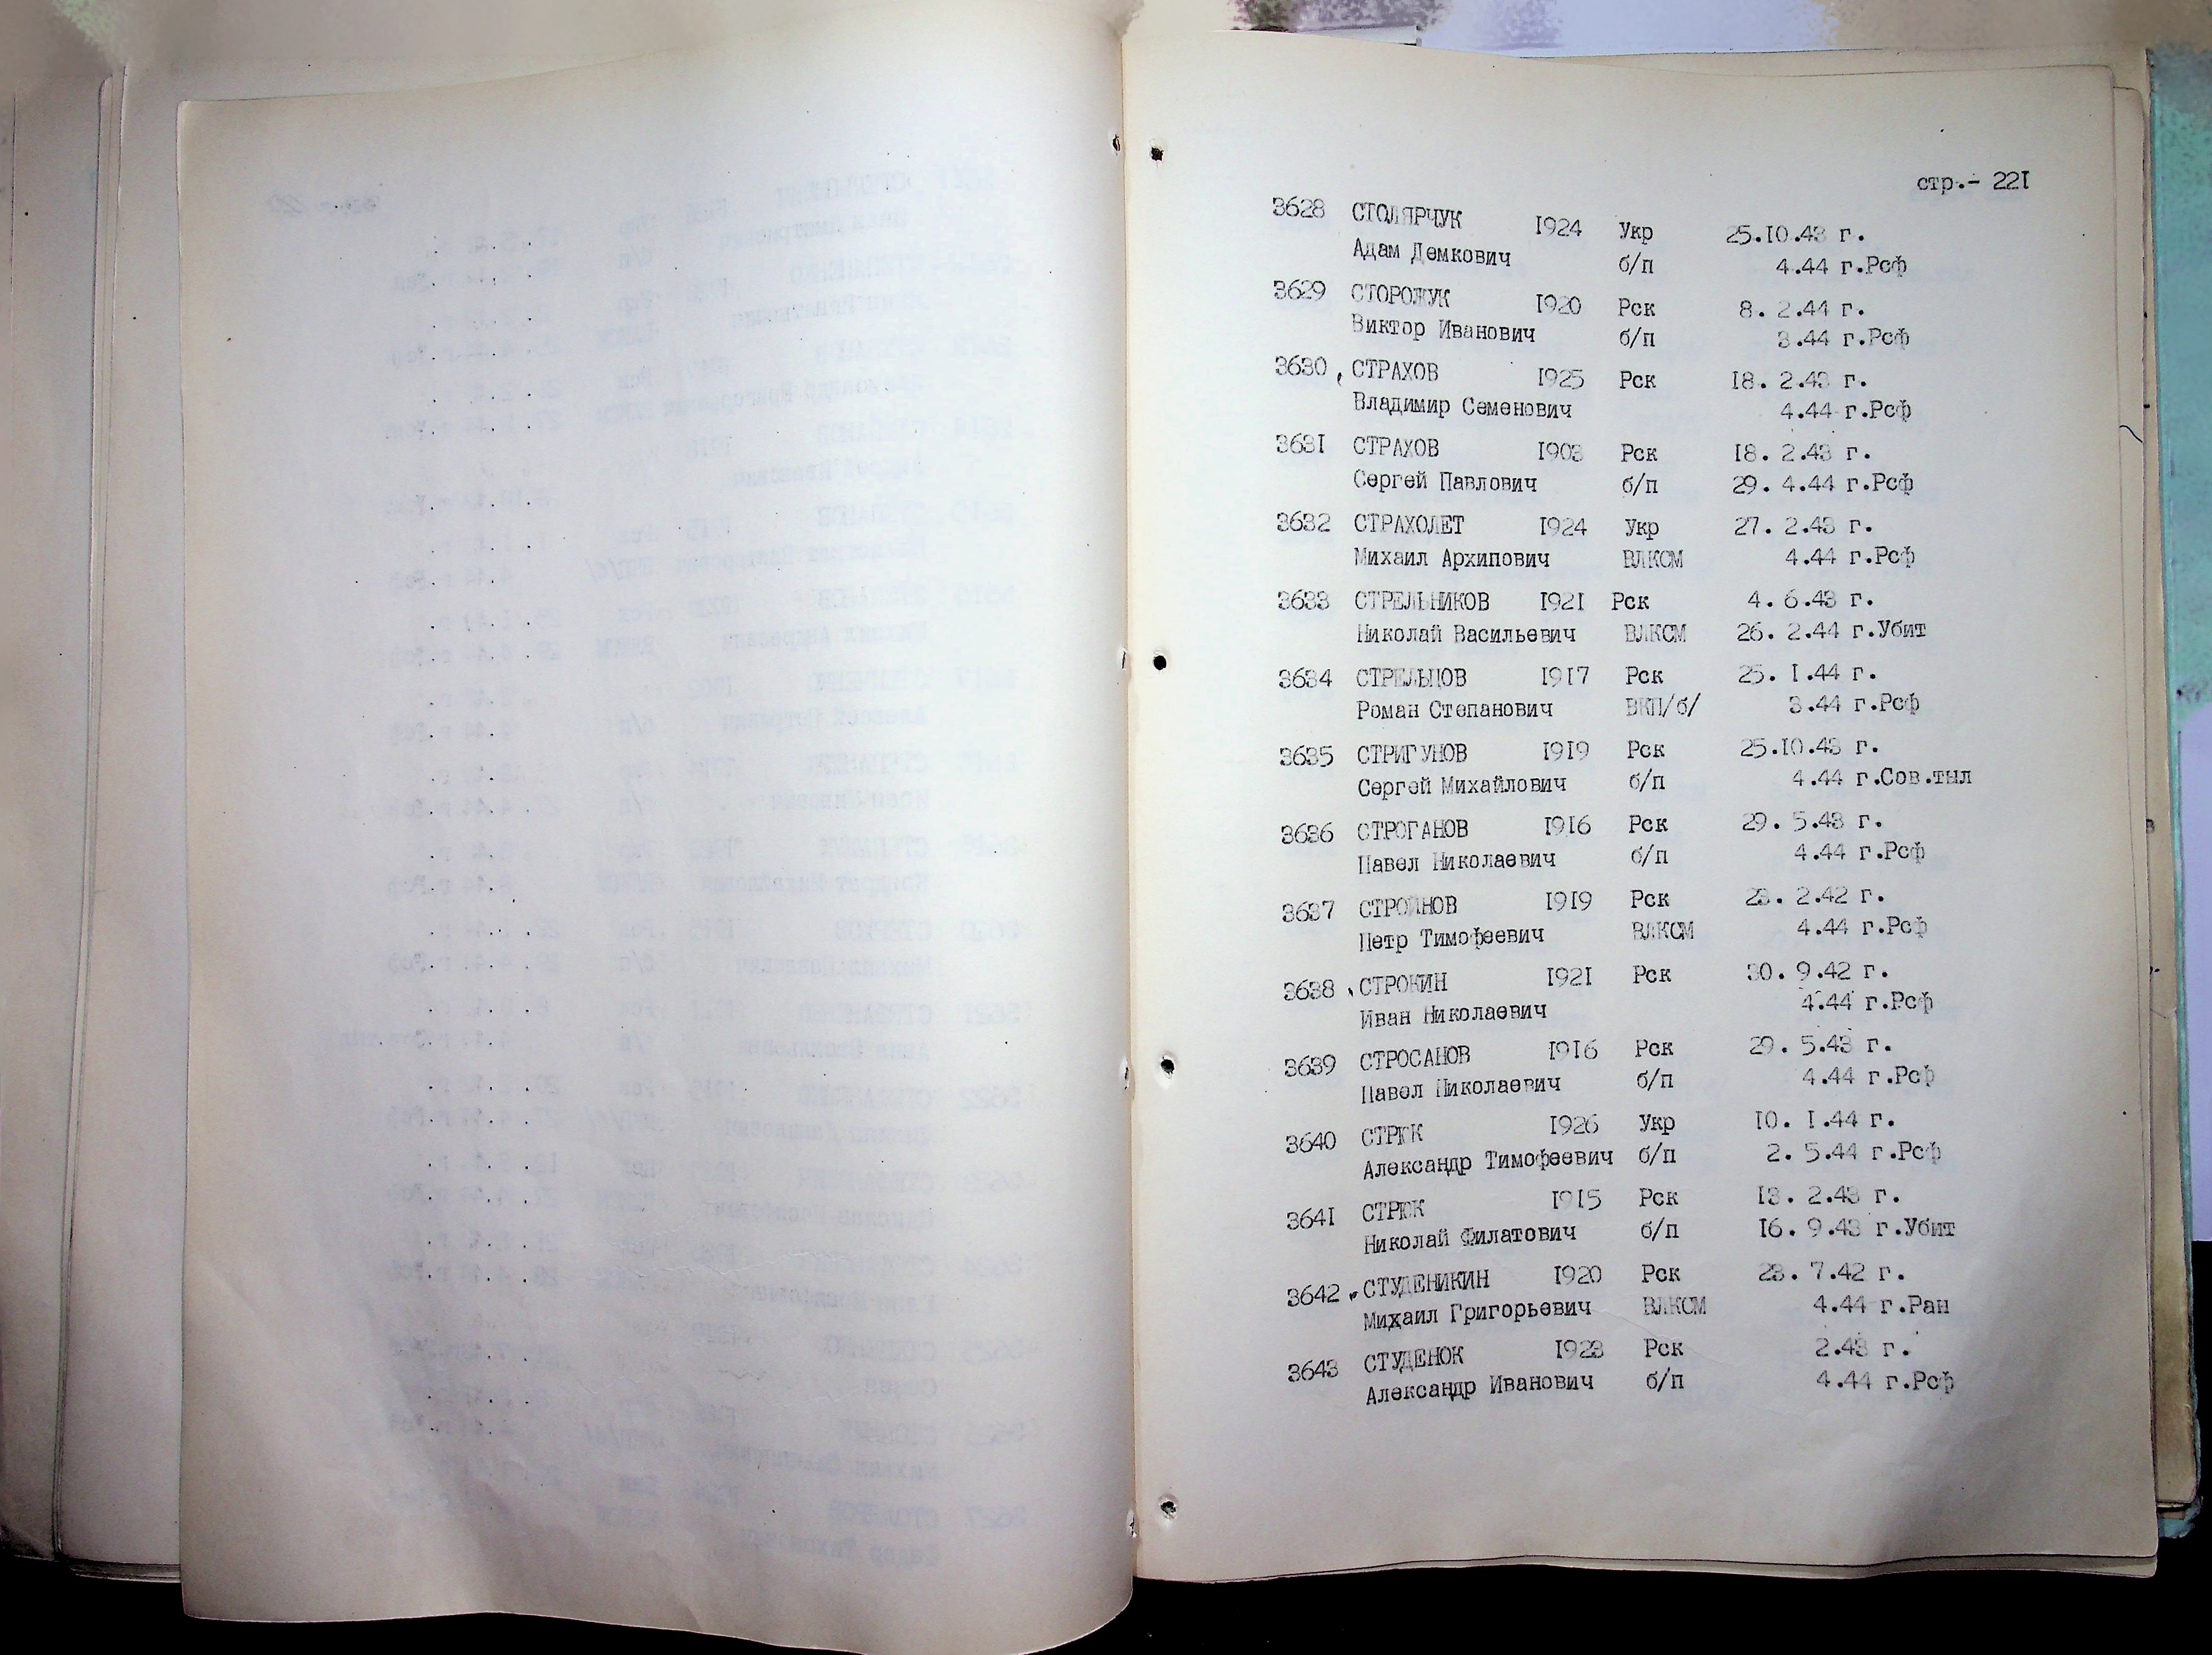 стр.- 221
3628 СТОЛЯРЧУК 1924 Укр 25.10.43 г.
Адам Демкович б/п 4.44 г.Рсф
3629 СТОРОЖУК 1920 Рск 8. 2.44 г.
Виктор Иванович б/п 3.44 г.Рсф
3630 СТРАХОВ 1925 Рск 18. 2.43 г.
Владимир Семенович 4.44 г.Рсф
3631 СТРАХОВ 1903 Рск 18. 2.43 г.
Сергей Павлович б/п 29. 4.44 г.Рсф
3632 СТРАХОЛЕТ 1924 Укр 27. 2.43 г.
Михаил Архипович ВЛКСМ 4.44 г.Рсф
3633 СТРЕЛЬНИКОВ 1921 Рск 4. 6.43 г.
Николай Васильевич ВЛКСМ 26. 2.44 г.Убит
3634 СТРЕЛЬЦОВ 1917 Рск 25. 1.44 г.
Роман Степанович ВКП/б/ 3.44 г.Рсф
3635 СТРИГУНОВ 1919 Рск 25.10.43 г.
Сергей Михайлович б/п 4.44 г.Сов.тыл
3636 СТРОГАНОВ 1916 Рск 29. 5.43 г.
Павел Николаевич б/п 4.44 г.Рсф
3637 СТРОЙНОВ 1919 Рск 23. 2.42 г.
Петр Тимофеевич ВЛКСМ 4.44 г.Рсф
3638 СТРОКИН 1921 Рск 30. 9.42 г.
Иван Николаевич 4.44 г.Рсф
3639 СТРОСАНОВ 1916 Рск 29. 5.43 г.
Павел Николаевич б/п 4.44 г.Рсф
3640 СТРЮК 1926 Укр 10. 1.44 г.
Александр Тимофеевич б/п 2. 5.44 г.Рсф
3641 СТРЮК 1915 Рск 13. 2.43 г.
Николай Филатович б/п 16. 9.43 г.Убит
3642 СТУДЕНИКИН 1920 Рск 23. 7.42 г.
Михаил Григорьевич ВЛКСМ 4.44 г.Ран
3643 СТУДЕНОК 1923 Рск 2.43 г.
Александр Иванович б/п 4.44 г.Рсф